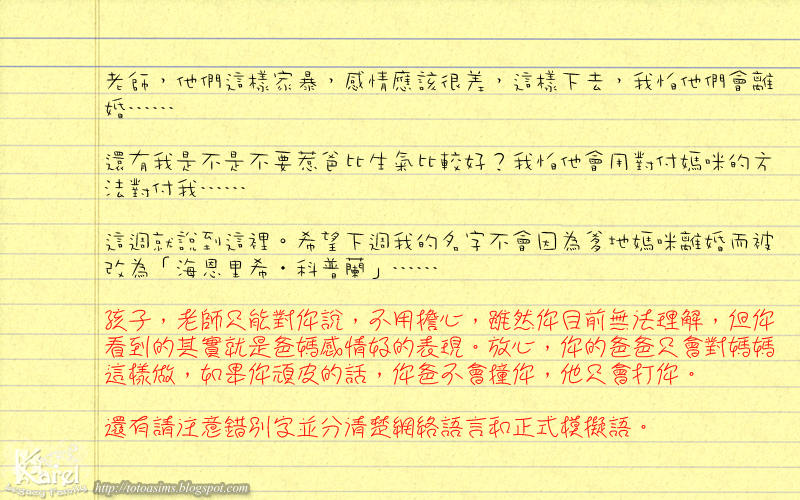 老師，他們這樣家暴，感情應該很差，這樣下去，我怕他們會離
婚……
還有我是不是不要惹爸比生氣比較好？我怕他會用對付媽咪的方
法對付我……
這週就說到這裡。希望下週我的名字不會因為爹地媽咪離婚而被
改為「海恩里希‧科普蘭」……
孩子，老師只能對你說，不用擔心，雖然你目前無法理解，但你
看到的其實就是爸媽感情好的表現。放心，你的爸爸只會對媽媽
這樣做，如果你頑皮的話，你爸不會撞你，他只會打你。
還有請注意錯別字並分清楚網絡語言和正式模擬語。
Karel
http://totoasims.blogspot.com